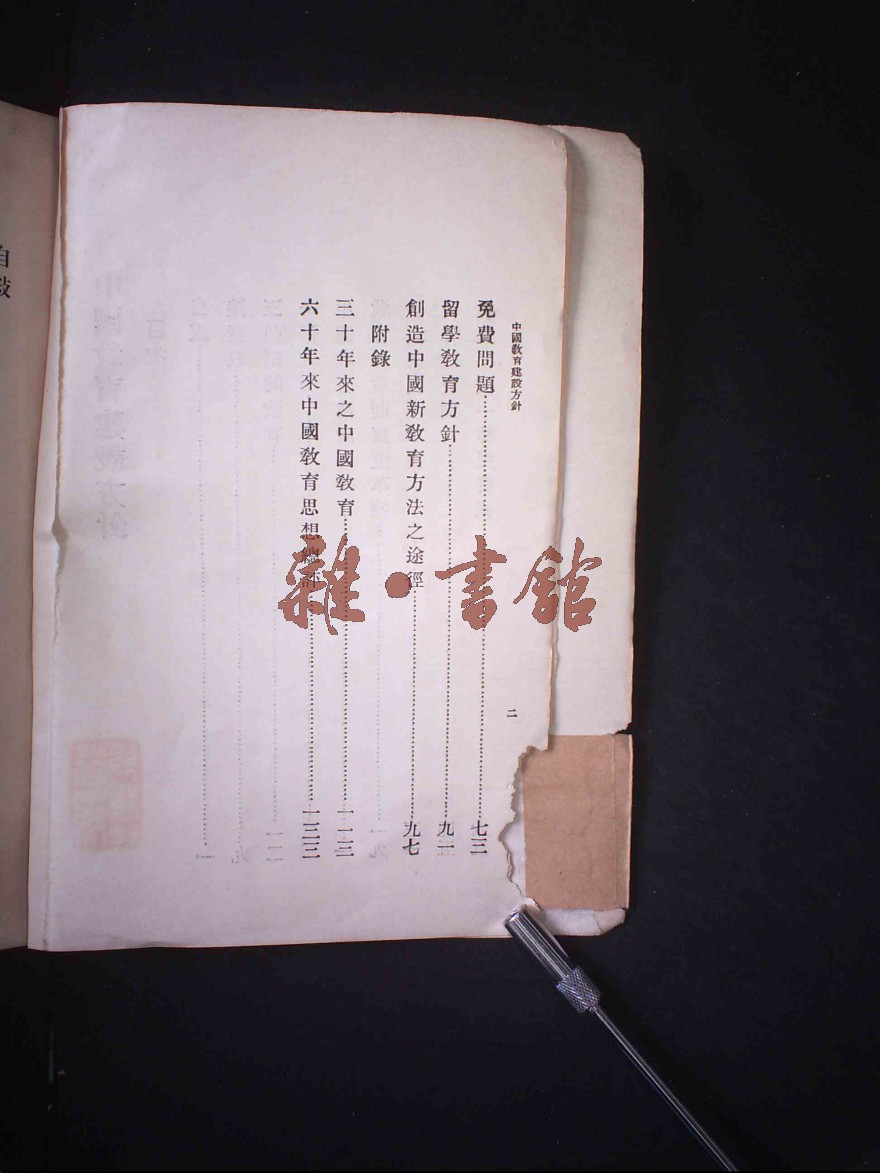 中國教育建設方針
二
免費問題……七三
留學教育方針……九一
創造中國新教育方法之途徑……九七
附錄
三十年來之中國教育……一一三
六十年來中國教育思想總評……一三三
雜·書館
自